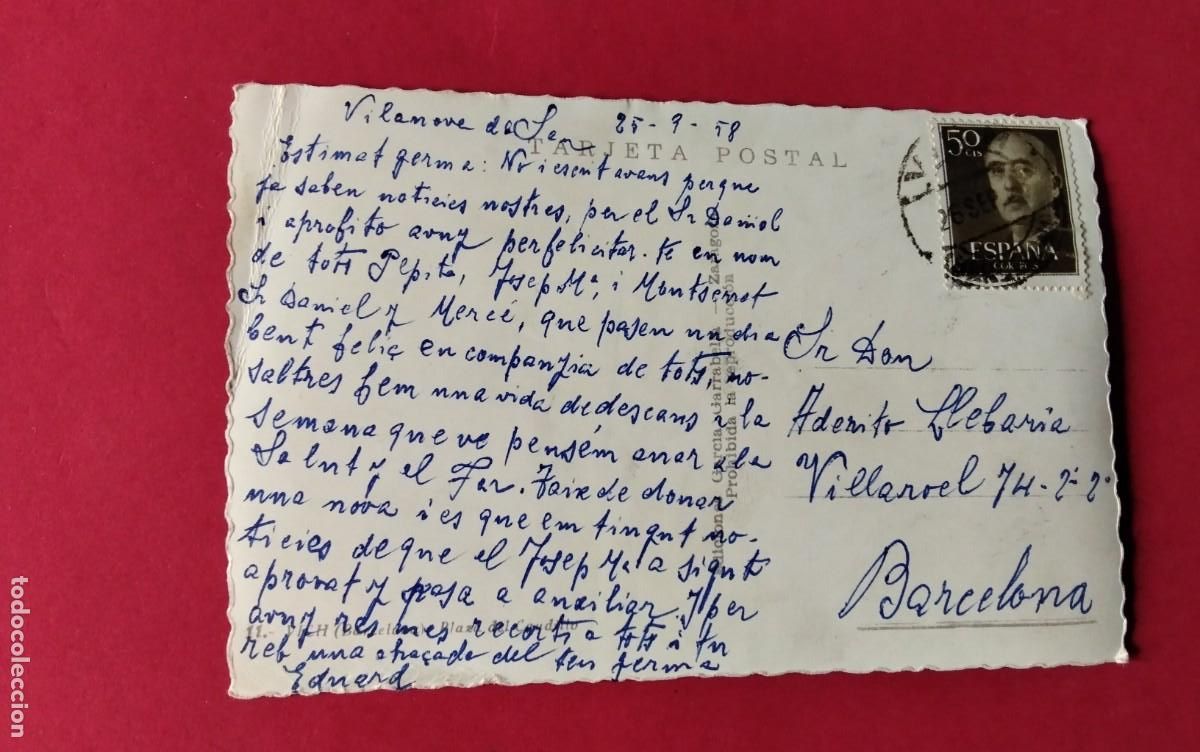 Vilanova de Sau 25-9-58
TARJETA POSTAL
Estimat germa: No i escrit avans perque
ja saben noticies nostres, per el Sr Daniel
i aprofito avuy per felicitar-te en nom
de tots Pepita, Josep Mª, i Montserrat
Sr Daniel y Mercé, que pasen un dia
bent feliç en companyia de tots, no-
saltres fem una vida de descans i la
semana que ve pensém anar a la
Salut y el Far. Taix de donar
una nova i es que em tingut no-
ticies de que el Josep Mª a sigut
aprovat y pasa a auxiliar. I per
avuy res mes recort a tots i tu
reb una abraçada del teu germa
Eduard
11.- VICH (Barcelona) Plaza del Caudillo
Ediciones García Garrabella - Zaragoza
Prohibida la reproducción
50 CTS
ESPAÑA
CORREOS
Sr Don
Aderito Llebaria
Villaroel 74-2º-2ª
Barcelona
todocoleccion